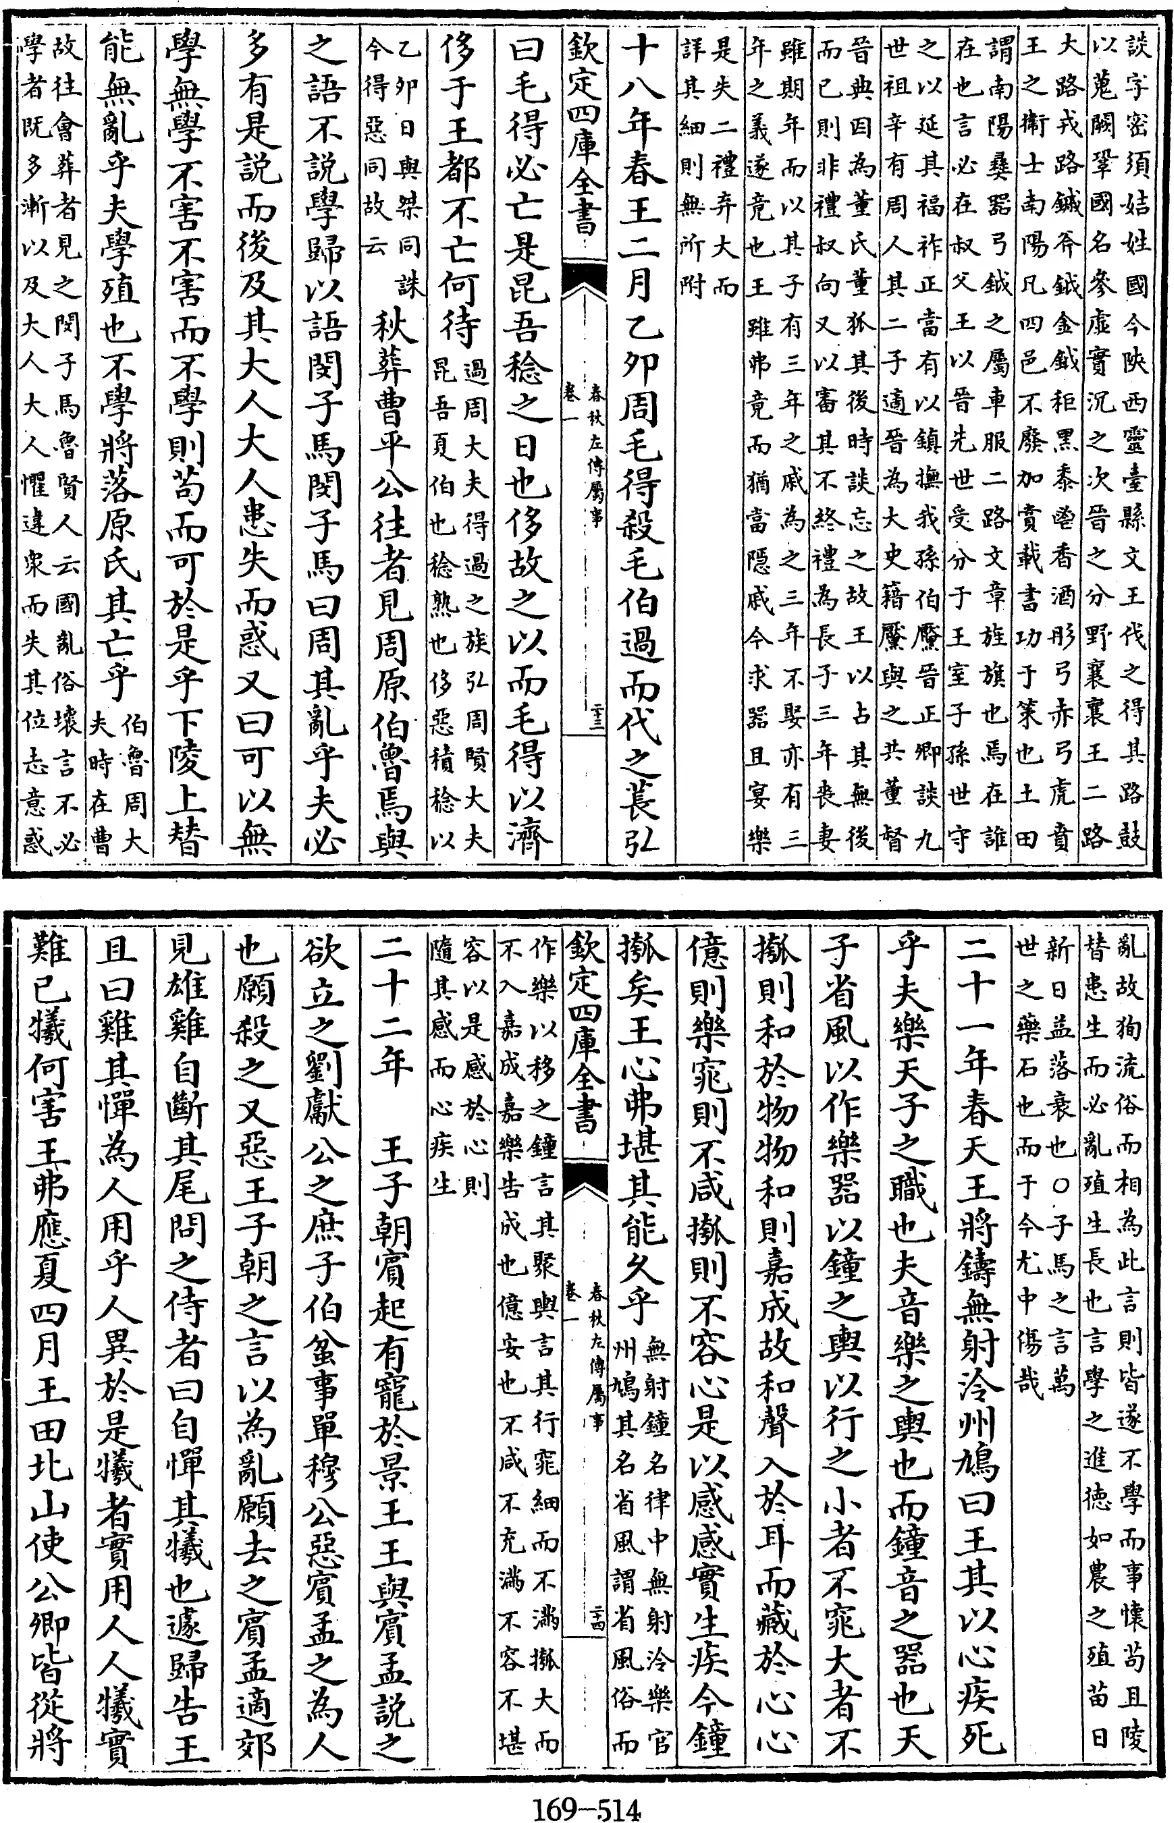 談字密須姞姓國今陜西靈臺縣文王伐之得其路鼓
以蒐闕鞏國名參虛實沉之次晉之分野襄襄王二路
大路戎路鏚斧鉞金鉞秬黑黍鬯香酒彤弓赤弓虎賁
王之衛士南陽凡四邑不廢加賁載書功于策也土田
謂南陽彝器弓鉞之屬車服二路文章旌旗也焉在誰
在也言必在叔父王以晉先世受分于王室子孫世守
之以延其福祚正當有以鎮撫我孫伯黶晉正卿談九
世祖辛有周人其二子適晉為大史籍黶與之共董督
晉典因為董氏董狐其後時談忘之故王以占其無後
而已則非禮叔向又以審其不終禮為長子三年喪妻
雖期年而以其子有三年之戚為之三年不娶亦有三
年之義遂竟也王雖弗竟而猶當隱戚今求器且宴樂
是失二禮弃大而
詳其細則無所附
十八年春王二月乙卯周毛得殺毛伯過而代之萇弘
欽定四庫全書
春秋左傳屬事
卷一
二十三
曰毛得必亡是昆吾稔之日也侈故之以而毛得以濟
侈于王都不亡何待
過周大夫得過之族弘周賢大夫
昆吾夏伯也稔熟也侈惡積稔以
乙卯日與桀同誅
今得惡同故云
秋葬曹平公往者見周原伯魯焉與
之語不説學歸以語閔子馬閔子馬曰周其亂乎夫必
多有是説而後及其大人大人患失而惑又曰可以無
學無學不害不害而不學則苟而可於是乎下陵上替
能無亂乎夫學殖也不學將落原氏其亡乎
伯魯周大
夫時在曹
故往會葬者見之閔子馬魯賢人云國亂俗壞言不必
學者既多漸以及大人大人懼違衆而失其位志意惑
亂故狥流俗而相為此言則皆遂不學而事懷苟且陵
替患生而必亂殖生長也言學之進德如農之殖苗日
新日益落衰也○子馬之言萬
世之藥石也而于今尤中傷哉
二十一年春天王將鑄無射泠州鳩曰王其以心疾死
乎夫樂天子之職也夫音樂之輿也而鐘音之器也天
子省風以作樂器以鐘之輿以行之小者不窕大者不
摦則和於物物和則嘉成故和聲入於耳而藏於心心
億則樂窕則不咸摦則不容心是以感感實生疾今鐘
摦矣王心弗堪其能久乎
無射鐘名律中無射泠樂官
州鳩其名省風謂省風俗而
欽定四庫全書
春秋左傳屬事
卷一
二十四
作樂以移之鐘言其聚輿言其行窕細而不滿摦大而
不入嘉成嘉樂告成也億安也不咸不充滿不容不堪
容以是感於心則
隨其感而心疾生
二十二年 王子朝賔起有寵於景王王與賔孟説之
欲立之劉獻公之庶子伯蚠事單穆公惡賔孟之為人
也願殺之又惡王子朝之言以為亂願去之賔孟適郊
見雄雞自斷其尾問之侍者曰自憚其犧也遽歸告王
且曰雞其憚為人用乎人異於是犧者實用人人犧實
難已犧何害王弗應夏四月王田北山使公卿皆從將
169-514